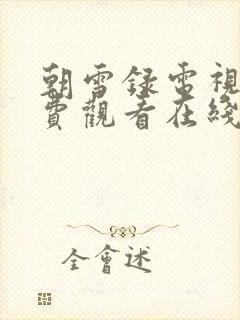 朝雪録電視
費觀看在綫
全會述